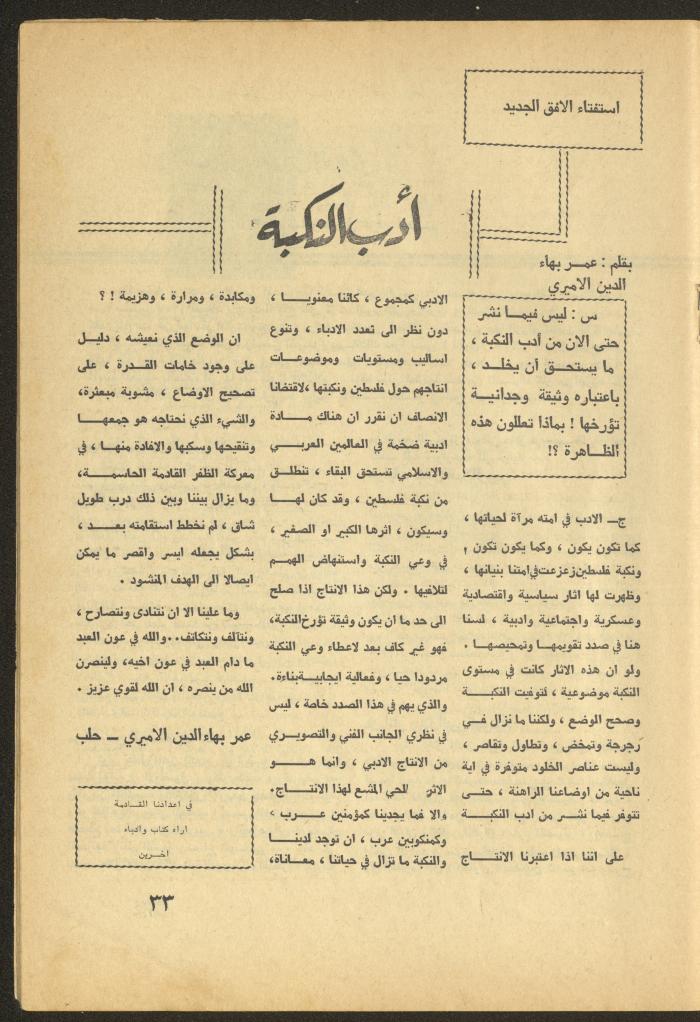 استفتاء الافق الجديد
أدب النكبة
بقلم : عمـر بهاء
الدين الاميري
س : ليس فيمـا نشر
حتى الان من أدب النكبة ،
ما يستحـق أن يخلد ،
باعتباره وثيقة وجدانيـة
تؤرخها ! بماذا تعللون هذه
الظـاهرة ؟!
جـ الادب في امته مرآة لحياتها ،
كما تكون يكون ، وكما يكون تكون ,
ونكبة فلسطين زعزعت في امتنا بنيانها ،
وظهرت لها اثار سياسية واقتصادية
وعسكرية واجتماعية وادبية ، لسنا
هنا في صدد تقويمهـا وتمحيصهـا .
ولو ان هذه الاثار كانت في مستوى
النكبة موضوعية ، لتوفيت النكبـــة
وصحح الوضع ، ولكننا ما نزال فـي
رجرجة وتمخض ، وتطاول وتقاصر ،
وليست عناصر الخلود متوفرة في اية
ناحية من اوضاعنا الراهنة ، حتـى
تتوفر فيما نشـر من ادب النكبـــة
على اننا اذا اعتبرنا الانتـــاج
الادبي كمجموع ، كائنا معنويـــا ،
دون نظر الى تعدد الادباء ، وتنوع
اساليب ومستويات وموضوعـات
انتاجهم حول فلسطين ونكبتها ، لاقتضانا
الانصاف ان نقرر ان هناك مــادة
ادبية ضخمة في العالمين العربـــي
والاسلامي تستحق البقاء ، تنطلـق
من نكبة فلسطين ، وقد كان لهــا
وسيكون ، اثرها الكبير او الصغير ،
في وعي النكبة واستنهاض الهمـم
لتلافيها . ولكن هذا الانتاج اذا صلح
الى حد ما ان يكون وثيقة تؤرخ النكبة،
فهو غير كاف بعد لاعطاء وعي النكبة
مردودا حيا ، وفعالية ايجابية بناءة.
والذي يهم في هذا الصدد خاصة ، ليس
في نظري الجانب الفني والتصويـري
من الانتاج الادبي ، وانما هـــو
الاثر الحي المشع لهذا الانتـاج.
والا فما يجدينا كمؤمنين عـــرب ،
وكمنكوبين عرب ، ان توجد لدينــا
والنكبة ما تزال في حياتنا ، معـاناة،
ومكابدة ، ومرارة ، وهزيمة ! ؟
ان الوضع الذي نعيشه ، دليـل
على وجود خامات القدرة ، علـى
تصحيح الاوضاع ، مشوبة مبعثرة،
والشيء الذي نحتاجه هو جمعهـا
وتنقيحها وسكبها والافادة منهـا ، في
معركة الظفر القادمة الحاسمـــة،
وما يزال بيننا وبين ذلك درب طويل
شاق ، لم نخطط استقامته بعـــد ،
بشكل يجعله ايسر واقصر ما يمكن
ايصالا الى الهدف المنشود .
وما علينا الا ان نتنادى ونتصارح ،
ونتآلف ونتكاتف.. والله في عون العبد
ما دام العبد في عون اخيه، ولينصرن
الله من ينصره ، ان الله لقوي عزيز .
عمر بهاء الدين الاميري ــ حلب
في اعدادنا القـادمة
اراء كتاب وادباء
اخرين
٣٣